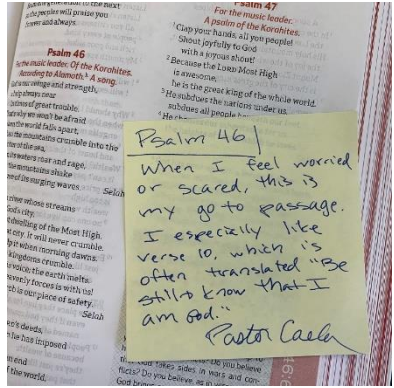 to the next
the peoples will praise you
forever and always.
Psalm 46
For the music leader. Of the Korahites.
According to Alamoth. A song.
refuge and strength,
help always near
in times of great trouble.
That's why we won't be afraid
when the world falls apart,
when the mountains crumble into the
center of the sea,
its waters roar and rage,
the mountains shake
of its surging waves. Selah
river whose streams
God's city,
dwelling of the Most High.
that city. It will never crumble.
help it when morning dawns.
kingdoms crumble.
his voice; the earth melts.
heavenly forces is with us!
is our place of safety.
Selah
deeds,
he has imposed
an end
of the
Psalm 47
For the music leader.
A psalm of the Korahites.
1 Clap your hands, all you people!
Shout joyfully to God
with a joyous shout!
2 Because the LORD Most High
is awesome,
he is the great king of the whole world.
3 He subdues the nations under us,
subdues all people
Psalm 46
When I feel worried
or scared, this is
my go to passage.
I especially like
verse 10, which is
often translated "Be
still to know that I
am God."
Pastor
takes sides in wars and con-
flicts? Do you believe
God